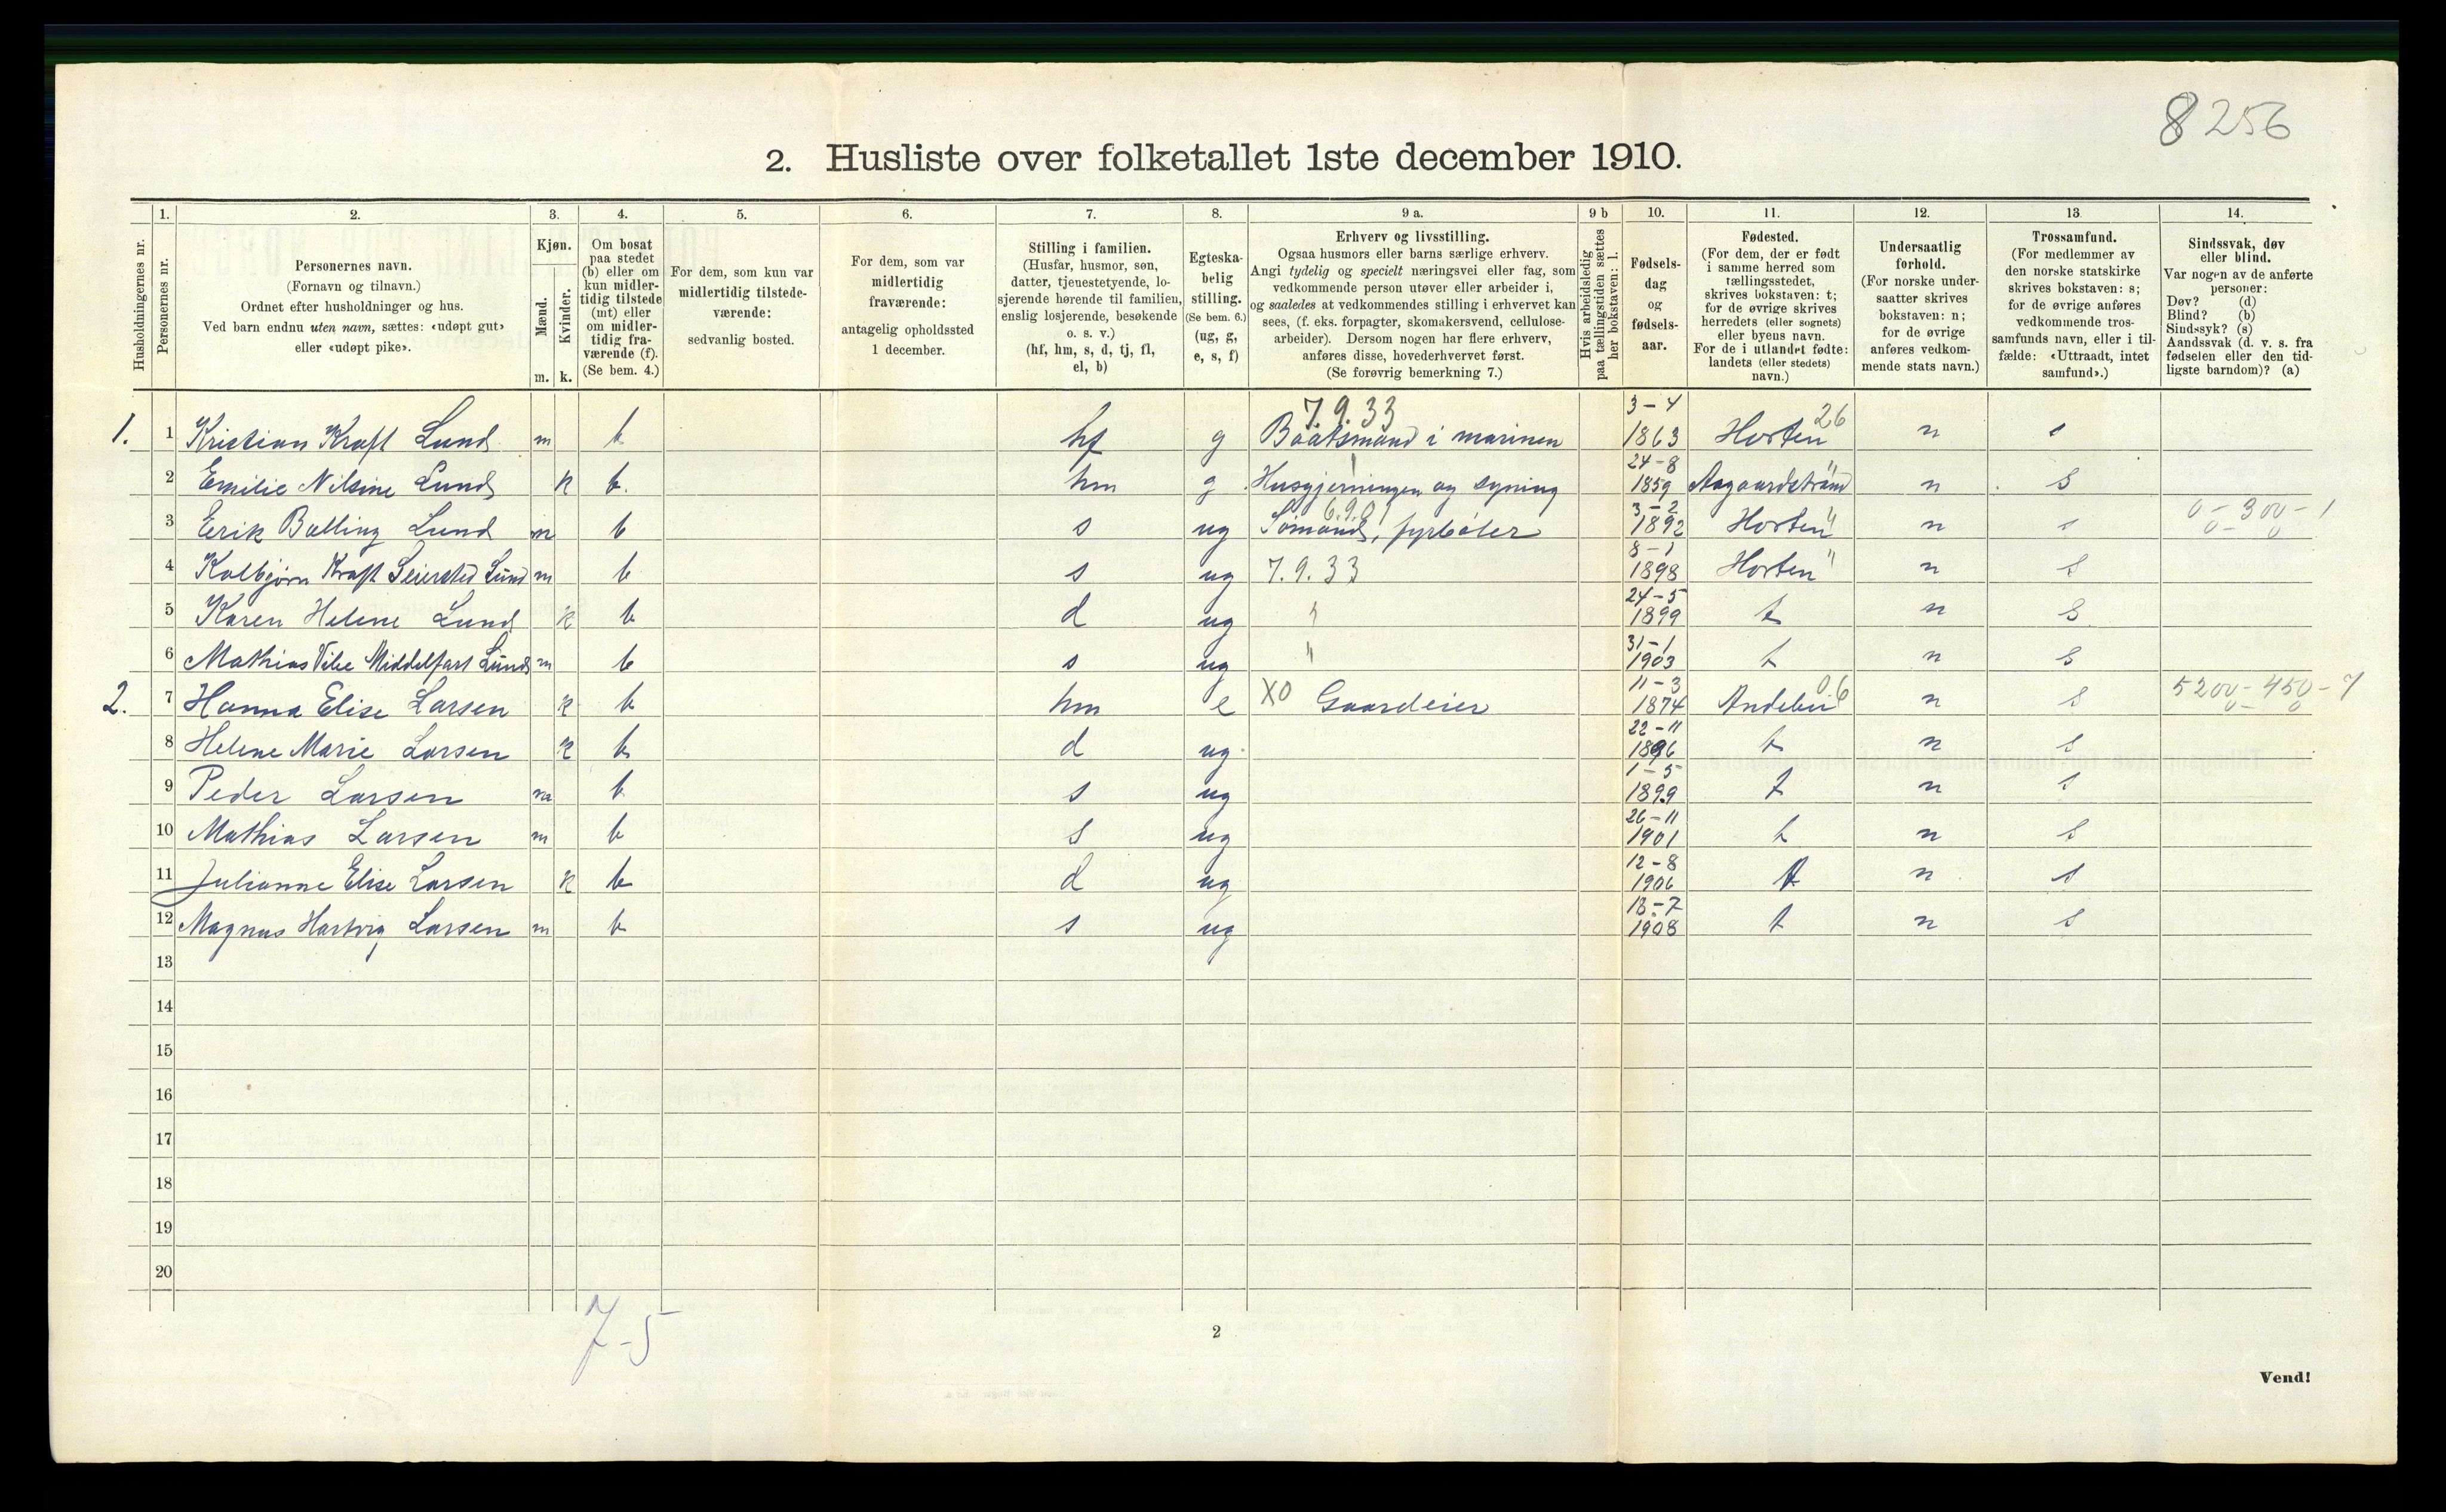 8256
2. Husliste over folketallet 1ste december 1910.
Husholdningernes nr.
1.
Personernes nr.
2.
Personernes navn.
(Fornavn og tilnavn.)
Ordnet efter husholdninger og hus.
Ved barn endnu uten navn, sættes: «udøpt gut»
eller «udøpt pike».
3.
Kjøn.
Mænd.
Kvinder.
m. k.
4.
Om bosat
paa stedet
(b) eller om
kun midler-
tidig tilstede
(mt) eller
om midler-
tidig fra-
værende (f).
(Se bem. 4.)
5.
For dem, som kun var
midlertidig tilstede-
værende:
sedvanlig bosted.
6.
For dem, som var
midlertidig
fraværende:
antagelig opholdssted
1 december.
7.
Stilling i familien.
(Husfar, husmor, søn,
datter, tjenestetyende, lo-
sjerende hørende til familien,
enslig losjerende, besøkende
o. s. v.)
(hf, hm, s, d, tj, fl,
el, b)
8.
Egteska-
belig
stilling.
(Se bem. 6.)
(ug, g,
e, s, f)
9 a.
Erhverv og livsstilling.
Ogsaa husmors eller barns særlige erhverv.
Angi tydelig og specielt næringsvei eller fag, som
vedkommende person utøver eller arbeider i,
og saaledes at vedkommendes stilling i erhvervet kan
sees, (f. eks. forpagter, skomakersvend, cellulose-
arbeider). Dersom nogen har flere erhverv,
anføres disse, hovederhvervet først.
(Se forøvrig bemerkning 7.)
9 b
Hvis arbeidsledig
paa tællingstiden sættes
her bokstaven: l.
10.
Fødsels-
dag
og
fødsels-
aar.
11.
Fødested.
(For dem, der er født
i samme herred som
tællingsstedet,
skrives bokstaven: t;
for de øvrige skrives
herredets (eller sognets)
eller byens navn.
For de i utlandet fødte:
landets (eller stedets)
navn.)
12.
Undersaatlig
forhold.
(For norske under-
saatter skrives
bokstaven: n;
for de øvrige
anføres vedkom-
mende stats navn.)
13.
Trossamfund.
(For medlemmer av
den norske statskirke
skrives bokstaven: s;
for de øvrige anføres
vedkommende tros-
samfunds navn, eller i til-
fælde: «Uttraadt, intet
samfund».)
14.
Sindssvak, døv
eller blind.
Var nogen av de anførte
personer:
Døv? (d)
Blind? (b)
Sindssyk? (s)
Aandssvak (d. v. s. fra
fødselen eller den tid-
ligste barndom)? (a)
7.9.33 3-4 26
1. 1 Kristian Kraft Lund m b hf g Baatsmand i marinen 1863 Horten n s
24-8 "
2 Emilie Nilsine Lund k b. hm g Husgjerningen og syning 1859 Aagaardstrand n s
3-2 " 0-300-1
3 Erik Balling Lund m b s ug Sømand, fyrbøter 1892 Horten n s
8-1
4 Kolbjørn Kraft Seiersted Lund m b s ug 7.9.33 1898 Horten " n s
24-5
5 Karen Helene Lund k b d ug " 1899 t n s
31-1
6 Mathias Vibe Middelfart Lund m b s ug " 1903 t n s
11-3 06 5200-450-7
2. 7 Hanna Elise Larsen k b hm e XO Gaardeier 1874 Andebu n s
22-11
8 Helene Marie Larsen k b d ug 1896 t n s
1-5
9 Peder Larsen m b s ug 1899 t n s
26-11
10 Mathias Larsen m b s ug 1901 t n s
12-8
11 Julianne Elise Larsen k b d ug 1906 t n s
13-7
12 Magnus Hartvig Larsen m b s ug 1908 t n s
13
14
15
16
17
18
19
20
7-5
2
Vend!